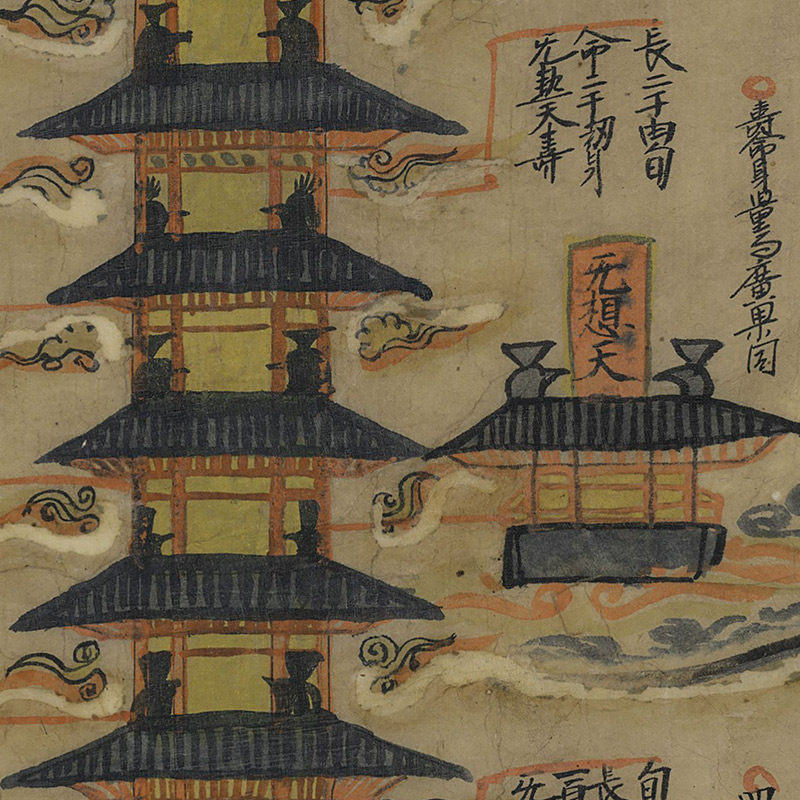 无熱天壽
命二千劫身
長二千由旬
壽命身量与廣果同
无想天
无
長
旬